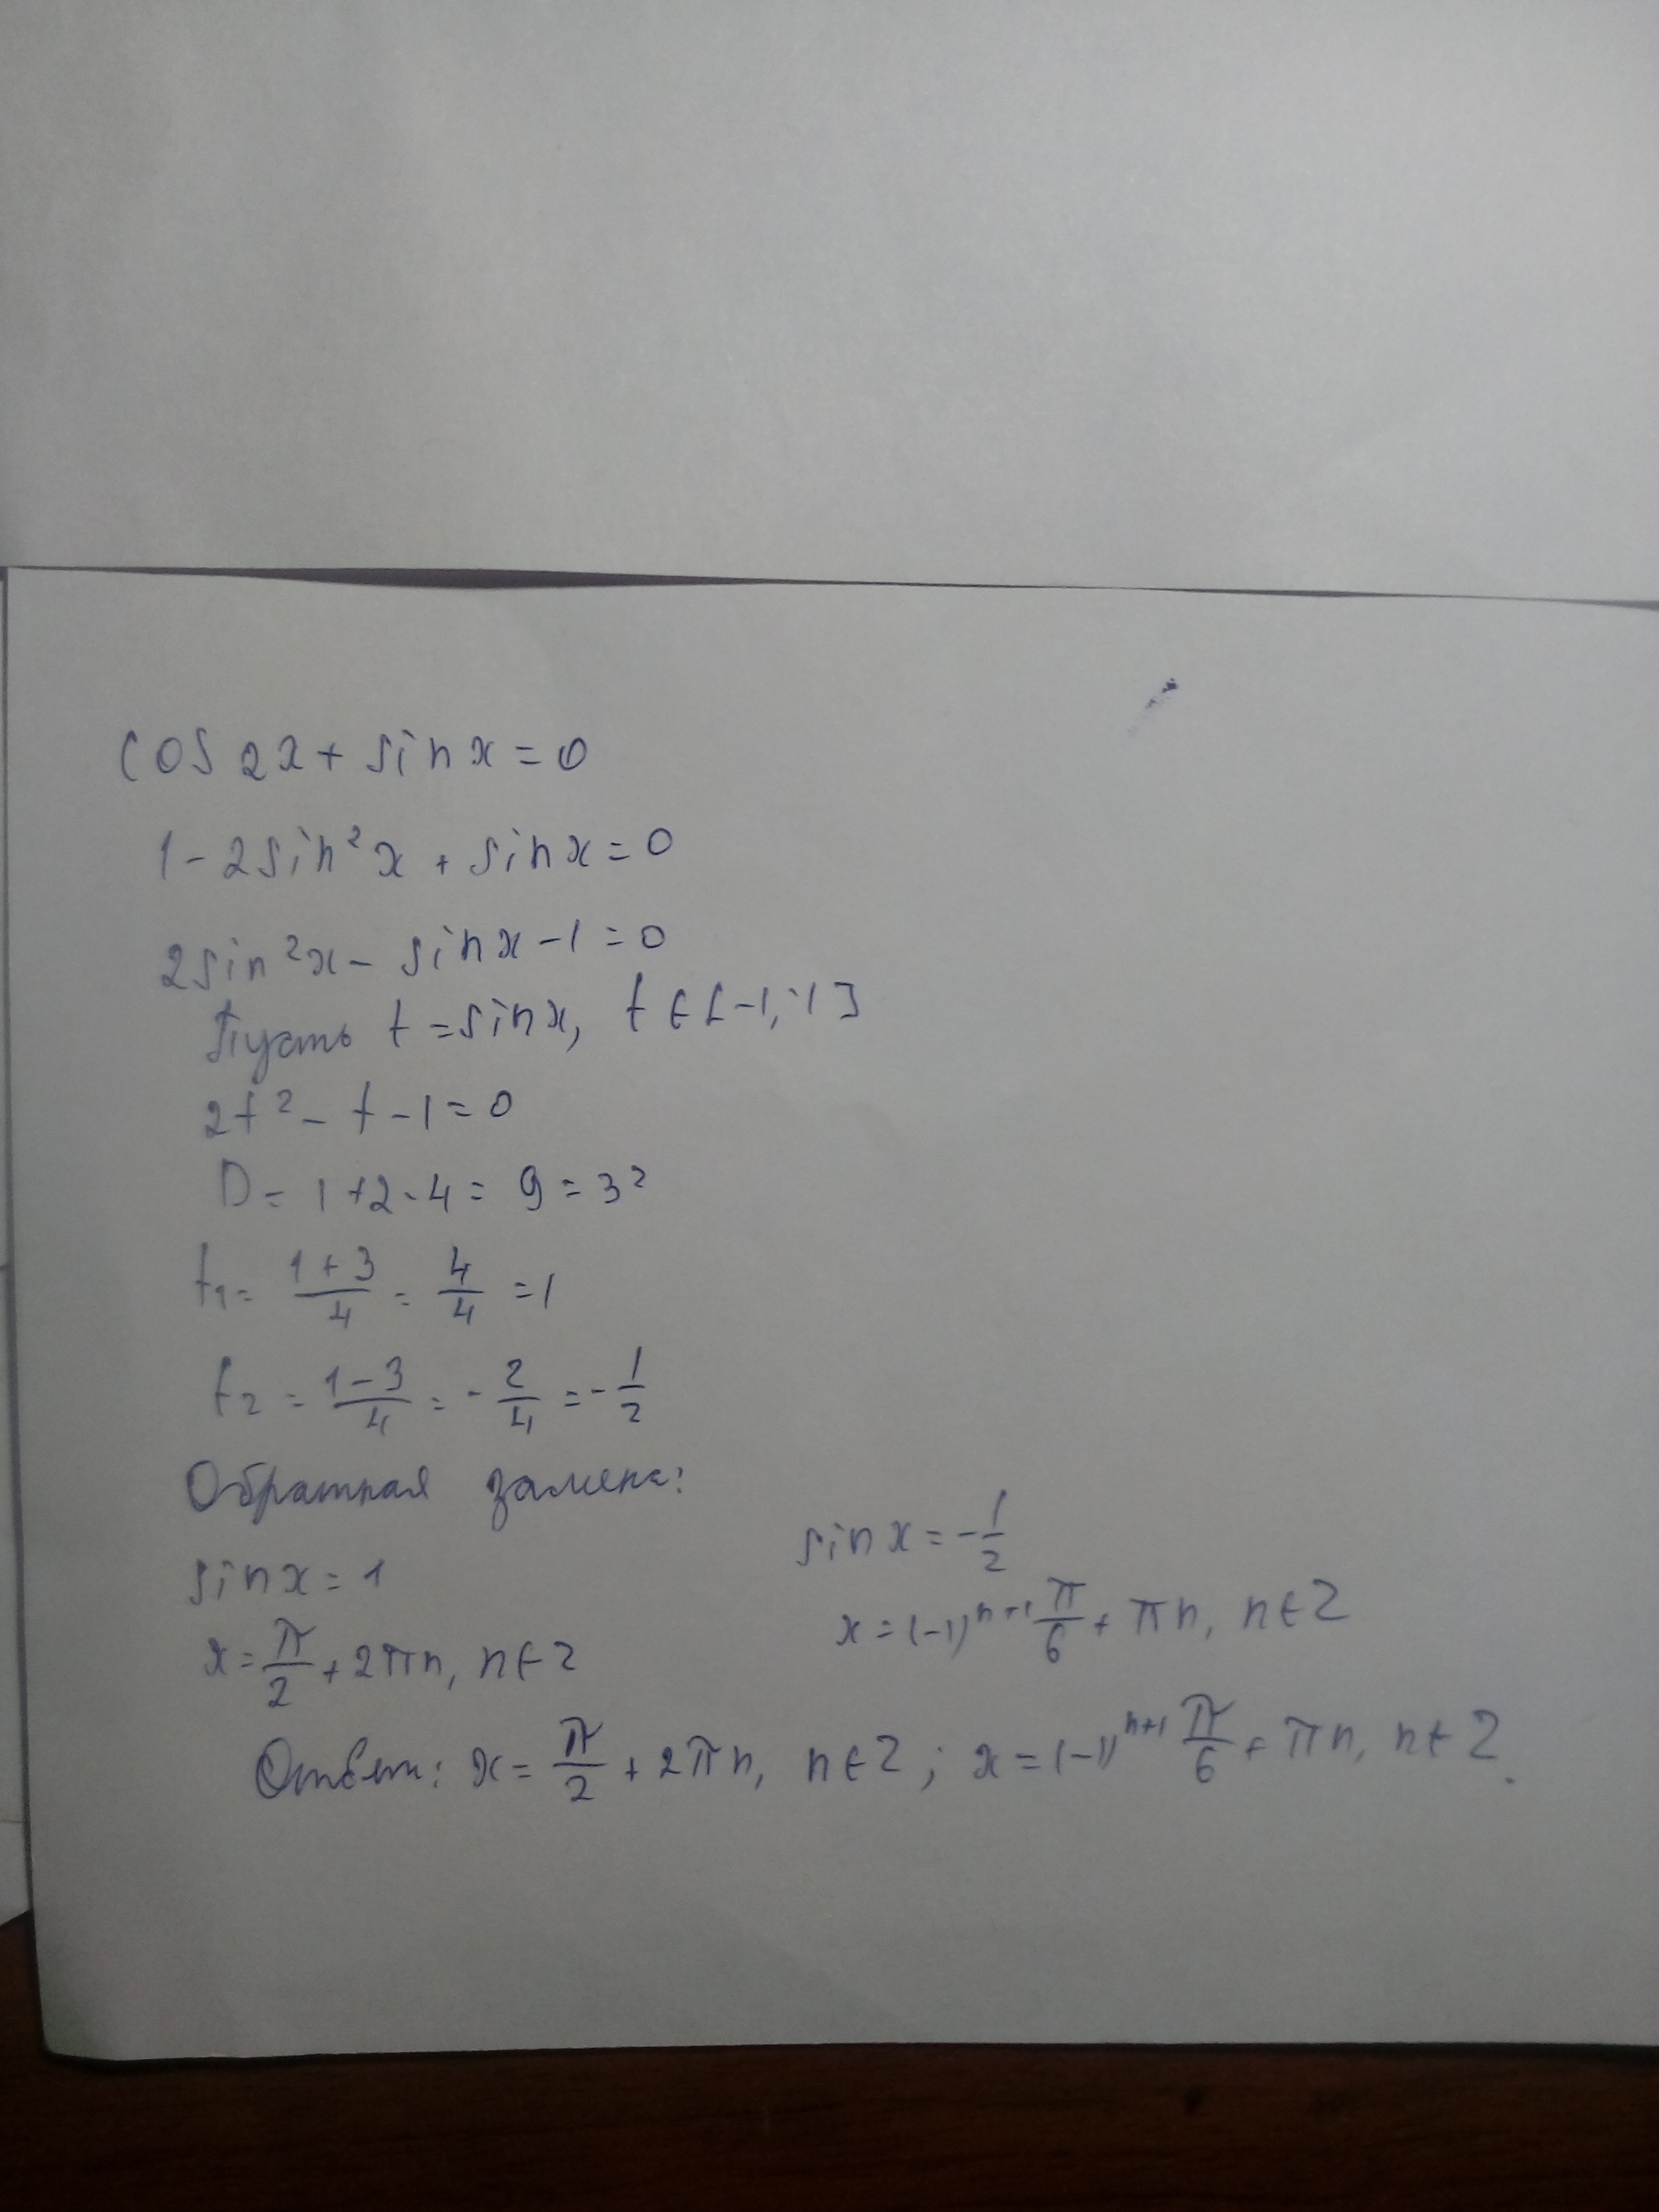 cos 2x + sin x = 0
1 - 2sin²x + sin x = 0
2sin²x - sin x - 1 = 0
Пусть t = sin x, t ∈ [-1; 1]
2t² - t - 1 = 0
D = 1 + 2·4 = 9 = 3²
t₁ = (1+3)/4 = 4/4 = 1
t₂ = (1-3)/4 = -2/4 = -1/2
Обратная замена:
sin x = 1
x = π/2 + 2πn, n ∈ Z
sin x = -1/2
x = (-1)ⁿ⁺¹ π/6 + πn, n ∈ Z
Ответ: x = π/2 + 2πn, n ∈ Z; x = (-1)ⁿ⁺¹ π/6 + πn, n ∈ Z.